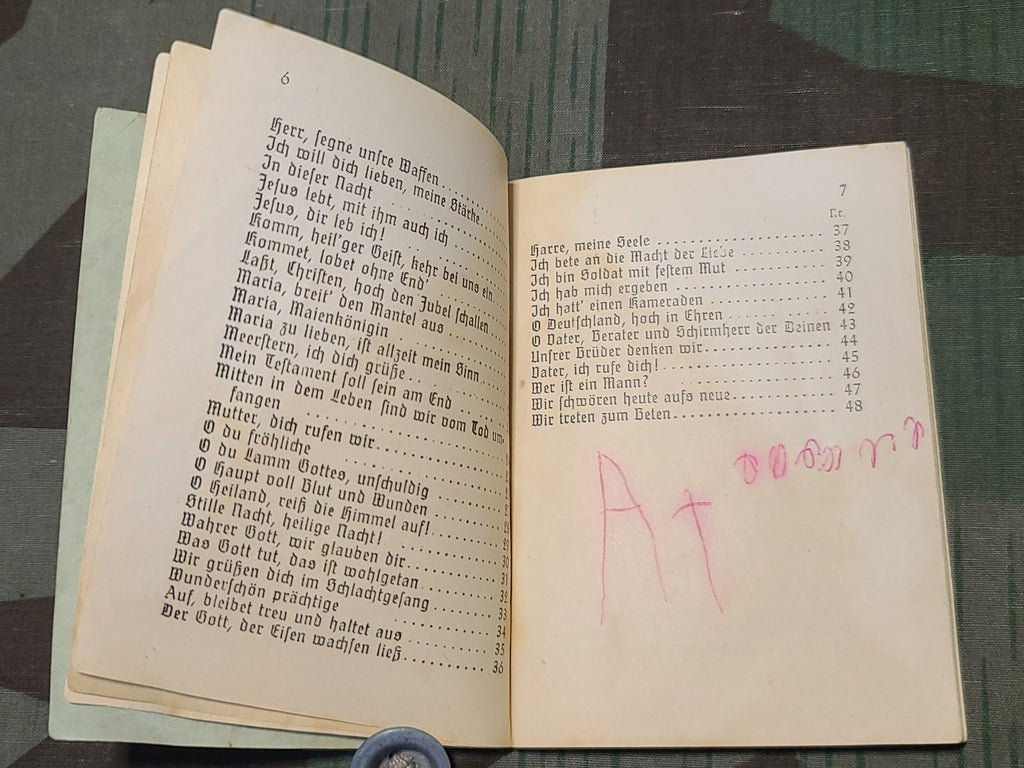 6
Herr, segne unsre Waffen . . . . . . .
Ich will dich lieben, meine Stärke. . .
In dieser Nacht . . . . . . . . . .
Jesus lebt, mit ihm auch ich . . . . . .
Jesus, dir leb ich! . . . . . . . . . .
Komm, heil'ger Geist, kehr bei uns ein.
Kommet, lobet ohne End' . . . . . . .
Laßt, Christen, hoch den Jubel schallen
Maria, breit' den Mantel aus . . . . . .
Maria, Maienkönigin . . . . . . . . .
Maria zu lieben, ist allzeit mein Sinn . . .
Meerstern, ich dich grüße. . . . . . . .
Mein Testament soll sein am End . . . .
Mitten in dem Leben sind wir vom Tod um-
fangen . . . . . . . . . . . . .
Mutter, dich rufen wir. . . . . . . . .
O du fröhliche . . . . . . . . . . .
O du Lamm Gottes, unschuldig . . . . .
O Haupt voll Blut und Wunden . . . . .
O Heiland, reiß die Himmel auf! . . . .
Stille Nacht, heilige Nacht! . . . . . .
Wahrer Gott, wir glauben dir. . . . . . 30
Was Gott tut, das ist wohlgetan. . . . . 31
Wir grüßen dich im Schlachtgesang . . . . 32
Wunderschön prächtige . . . . . . . . 33
Auf, bleibet treu und haltet aus . . . . . 34
Der Gott, der Eisen wachsen ließ. . . . . 35
36
7
Nr.
Harre, meine Seele . . . . . . . . . . 37
Ich bete an die Macht der Liebe . . . . . 38
Ich bin Soldat mit festem Mut . . . . . 39
Ich hab mich ergeben . . . . . . . . . 40
Ich hatt' einen Kameraden . . . . . . . 41
O Deutschland, hoch in Ehren . . . . . . 42
O Vater, Berater und Schirmherr der Deinen 43
Unsrer Brüder denken wir. . . . . . . . 44
Vater, ich rufe dich! . . . . . . . . . 45
Wer ist ein Mann? . . . . . . . . . . 46
Wir schwören heute aufs neue. . . . . . 47
Wir treten zum Beten. . . . . . . . . 48
At